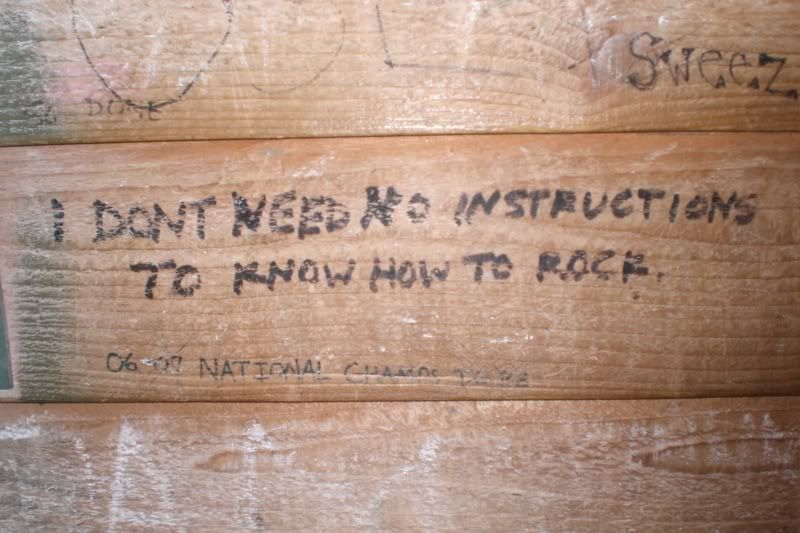 Sweez
DONE
I DONT NEED NO INSTRUCTIONS
TO KNOW HOW TO ROCK.
06-07 NATIONAL CHAMPS